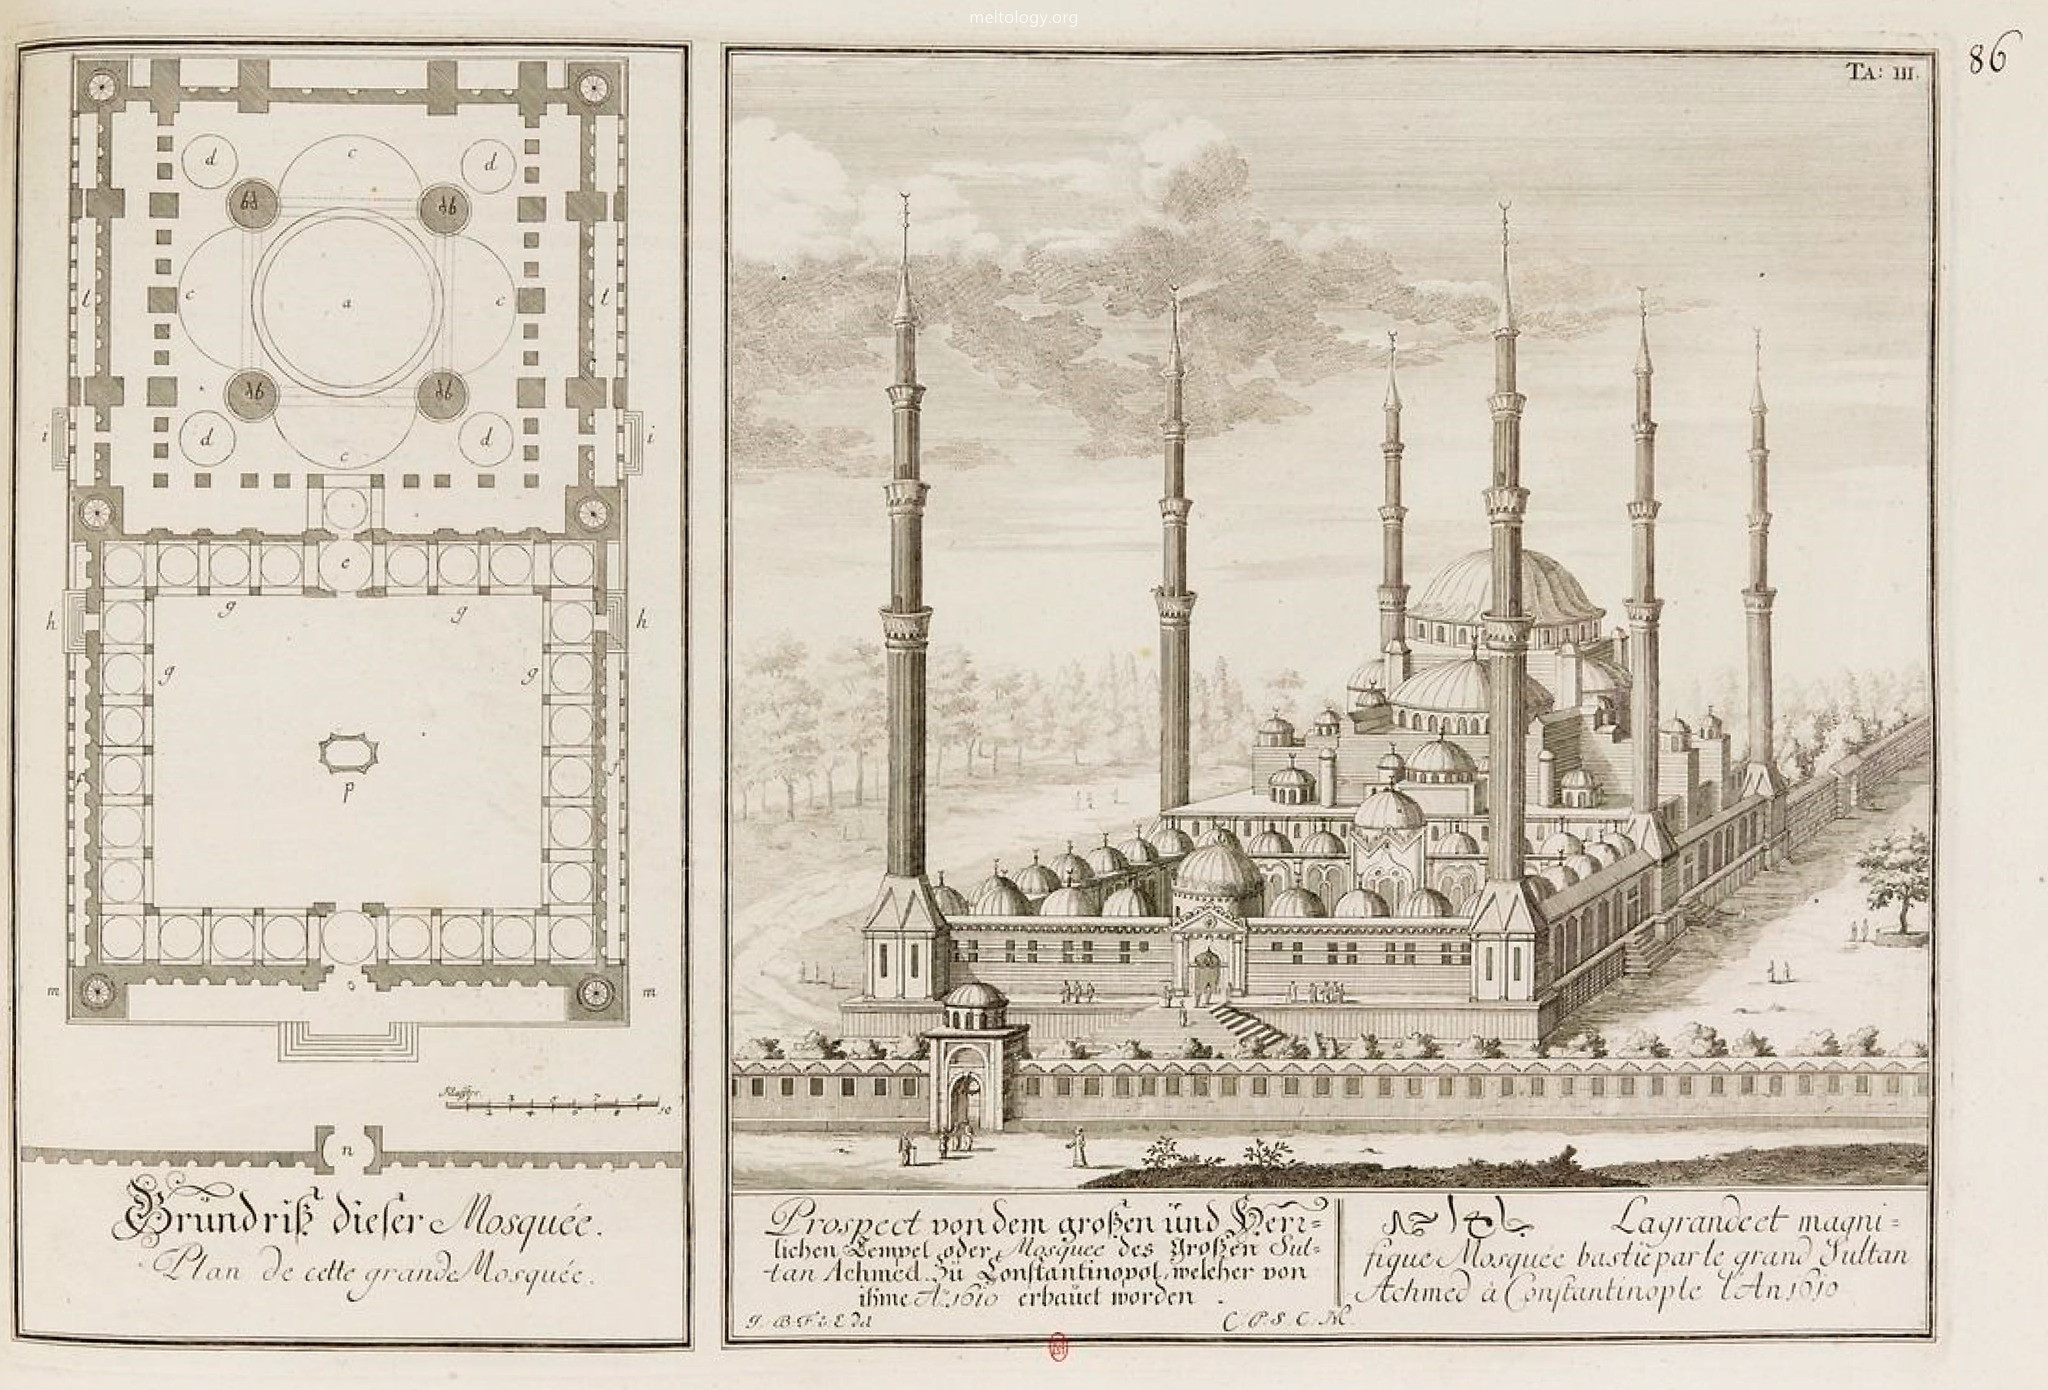 meltology.org
86
TA: III.
d c d
b b
c a c
l l
b b
d c d
i i
e
h g g h
g g
p
m o m
Klaffter.
1 2 3 4 5 6 7 8 9 10
n
Gründriß dieser Mosquée.
Plan de cette grande Mosquée.
Prospect von dem großen ünd Herr=
lichen Tempel oder Mosquee des großen Sul=
tan Achmed. Zü Constantinopol, welcher von
ihme A. 1610 erbaüet worden.
La grande et magni=
fique Mosquée bastië par le grand Sultan
Achmed à Constantinople l'An 1610
I. B. F. v. E. del
C. P. S. C. M.